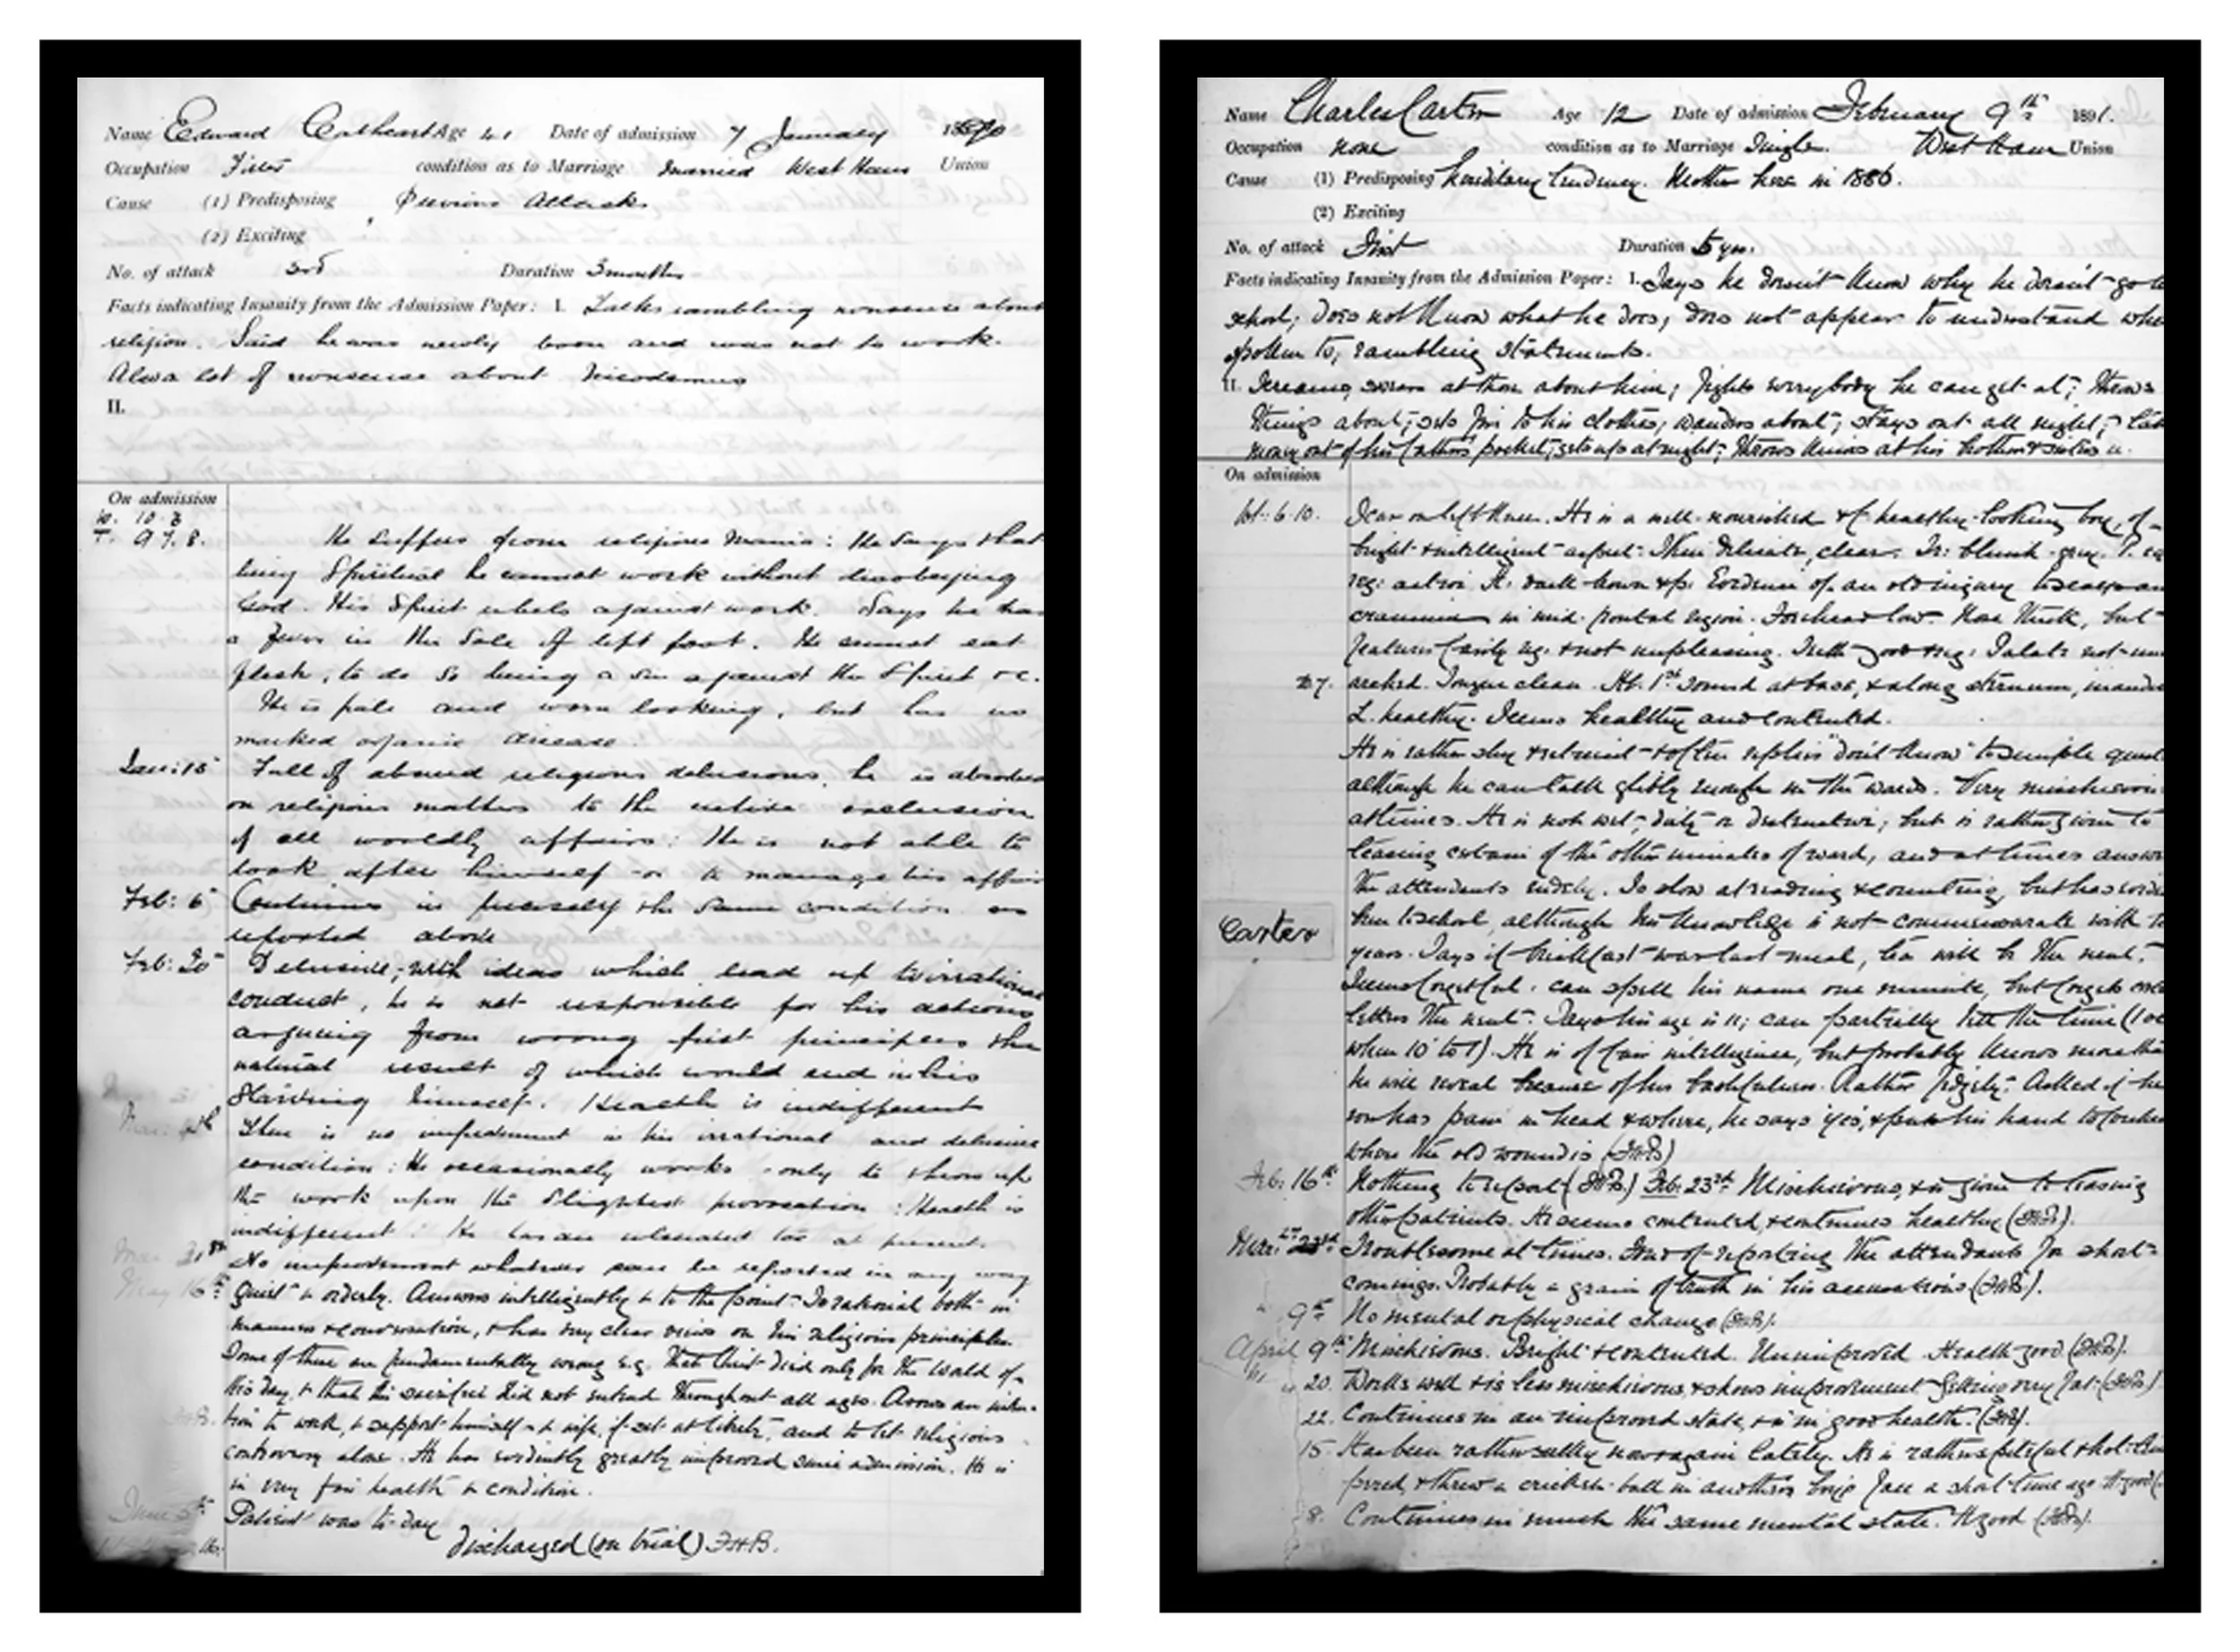 Name Edward Cathcart Age 41 Date of admission 7 January 1890
Occupation Fitter condition as to Marriage Married West Ham Union
Cause (1) Predisposing Previous Attacks
(2) Exciting
No. of attack 3rd Duration 3 months
Facts indicating Insanity from the Admission Paper: I. Talks rambling nonsense about
religion. Said he was newly born and was not to work.
Also a lot of nonsense about Nicodemus
II.
On admission
10. 3
T. 97.8.
He suffers from religious mania: He says that
being Spiritual he cannot work without disobeying
God. His Spirit rebels against work. Says he has
a Fever in the Sole of left foot. He cannot eat
flesh, to do so being a sin against the Spirit &c.
He is pale and worn looking, but has no
marked organic disease.
Jan: 15 Full of absurd religious delusions, he is absorbed
on religious matters to the entire exclusion
of all worldly affairs: He is not able to
look after himself or to manage his affairs
Feb: 6 Continues in precisely the same condition as
reported above
Feb: 20 Delusive, with ideas which lead up to irrational
conduct, he is not responsible for his actions
arguing from wrong first principles the
natural result of which would end in his
starving himself. Health is indifferent
Mar: 4th There is no improvement in his irrational and delusive
condition: He occasionally works only to throw up
the work upon the slightest provocation: Health is
indifferent: He has an ulcerated toe at present.
Mar 31st No improvement whatever can be reported in any way
May 16th Quiet & orderly. Answers intelligently & to the point. Is rational both in
manner & conversation, & has very clear views on his religious principles.
Some of these are fundamentally wrong e.g. that Christ died only for the world of
his day, & that his sacrifice did not extend throughout all ages. Avows an inten-
tion to work, to support himself & wife, if set at liberty, and to let religious
controversy alone. He has evidently greatly improved since admission. He is
in very fair health & condition.
June 5th Patient was to-day
Discharged (on trial) F.H.B.
Name Charles Carter Age 12 Date of admission February 9th 1891.
Occupation none condition as to Marriage Single. West Ham Union
Cause (1) Predisposing hereditary tendency. Mother here in 1886.
(2) Exciting
No. of attack First Duration 5 yrs.
Facts indicating Insanity from the Admission Paper: I. Says he doesn't know why he doesn't go to
school; does not know what he does; does not appear to understand when
spoken to; rambling statements.
II. Screams, swears at those about him; fights everybody he can get at; throws
things about; sets fire to his clothes; wanders about; stays out all night;
money out of his father's pocket; gets up at night; throws knives at his brothers & sisters
On admission
Wt. 6.10. Scar on left knee. He is a well-nourished & healthy-looking boy, of
bright & intelligent aspect. Skin delicate, clear. Ir: bluish-gray. P.
reg: action. H. dark brown Evidence of an old injury to scalp and
cranium in mid-frontal region. Forehead low. Nose thick, but
features fairly reg: & not unpleasing. Teeth good & reg: Palate not
arched. Tongue clean. Ht. 1st sound at base, & along sternum,
L. healthy. Seems healthy and contented.
He is rather shy & reticent & often replies "don't know" to simple
although he can talk glibly enough in the wards. Very mischievous
at times. He is not wet, dirty or destructive; but is rather given to
teasing certain of the other inmates of ward, and at times answers
the attendants rudely. Is slow at reading & counting, but has
been to school, although his knowledge is not commensurate with
Carter
years. Says if breakfast was last meal, tea will be the next.
Seems forgetful, can spell his name one minute, but forgets
letters the next. Says his age is 11; can partially tell the time
when 10' to 1). He is of fair intelligence, but probably knows more than
he will reveal because of his bashfulness. Rather fidgety. Asked if he
ever has pain in head & where, he says 'yes', & puts his hand to forehead
where the old wound is (FHB)
Feb: 16th Nothing to report (FHB) Feb: 23rd Mischievous, & is given to teasing
other patients. He seems contented, & continues healthy (FHB).
Mar: Troublesome at times. Fond of reporting the attendants for short-
comings. Probably a grain of truth in his accusations (FHB).
9th No mental or physical change (FHB).
April 9th Mischievous. Bright & contented. Unimproved. Health good (FHB).
20. Works well & is less mischievous, & shows improvement. Getting very fat. (FHB)
22. Continues in an improved state, & is in good health. (FHB).
15. Has been rather sulky now & again lately. He is rather spiteful & hot-tem-
pered, & threw a cricket-ball in another boy's face a short time ago. H. good
8. Continues in much the same mental state. H. good (FHB).